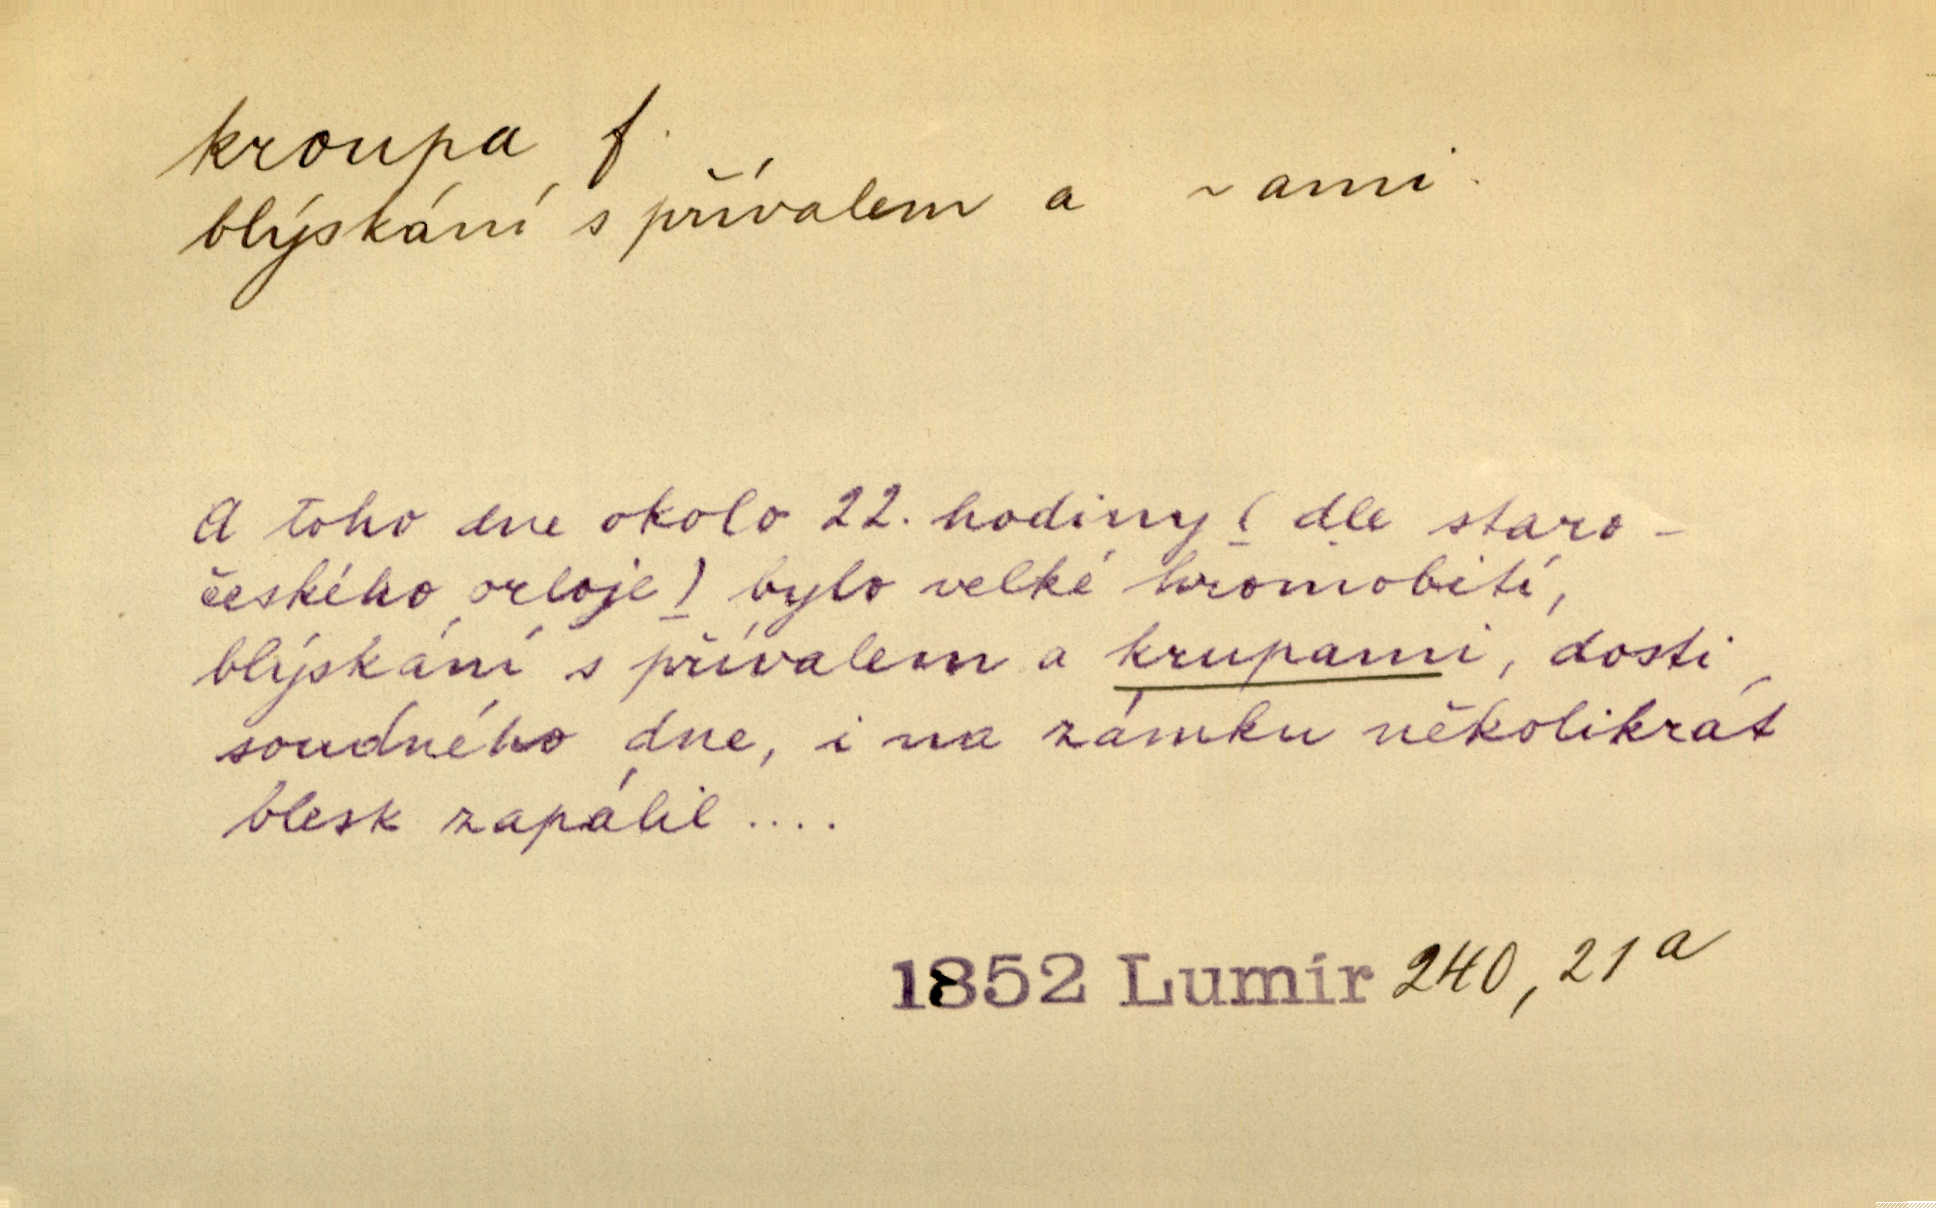 kroupa f.
blýskání s přívalem a ~ami.
A toho dne okolo 22. hodiny (dle staro-
českého orloje) bylo velké hromobití,
blýskání s přívalem a krupami, dosti
soudného dne, i na zámku několikrát
blesk zapálil ....
1852 Lumír 240, 21a